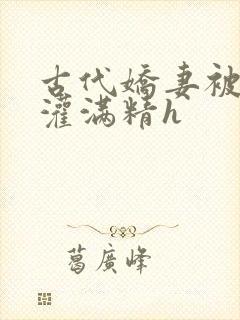 古代嬌妻被
灌滿精h
葛廣峰